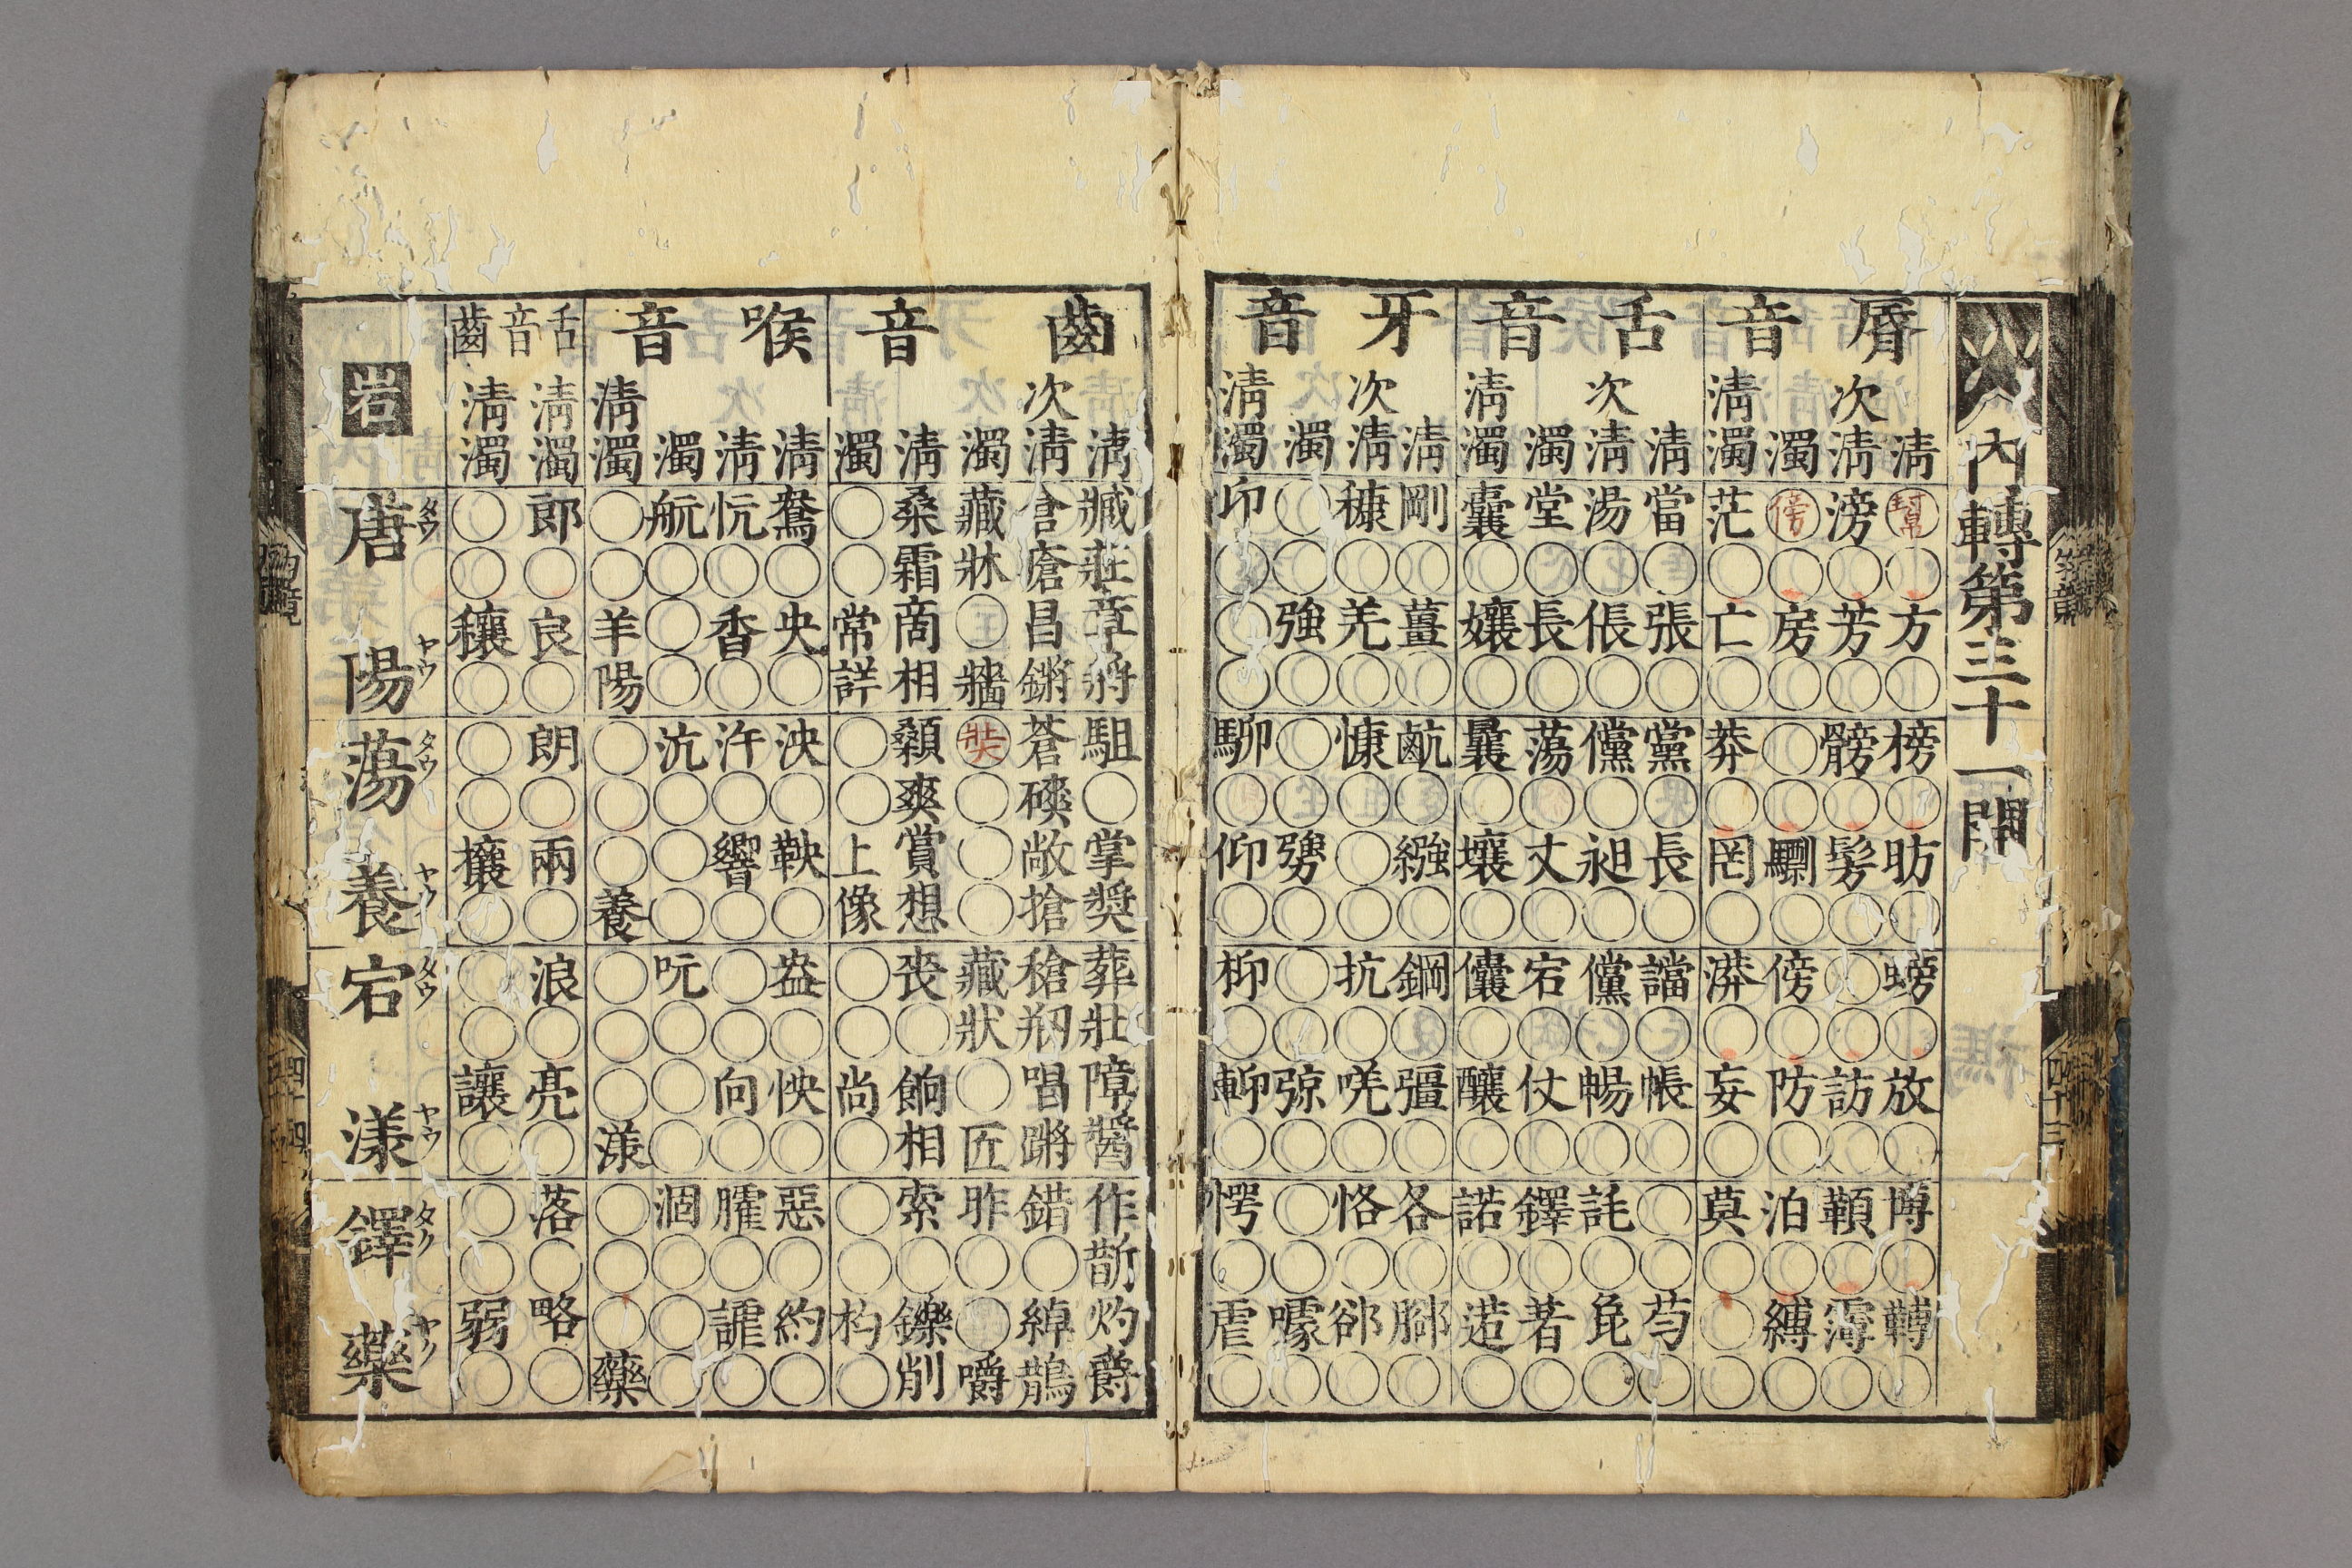 内轉第三十一開
脣音
清幫○方○榜○昉○螃○放○博○○
次清滂○芳○髈○髣○○○訪○○○
濁傍○房○○○○傍○防○泊○縛○
清濁茫○亡○莽○罔○漭○妄○莫○○○
舌音
清當○張○黨○長○譡○帳○○○芍○
次清湯○倀○儻○昶○儻○暢○託○㲋○
濁堂○長○蕩○丈○宕○仗○鐸○著○
清濁囊○孃○曩○壤○儾○釀○諾○逽○
牙音
清剛○薑○䴚○繦○鋼○彊○各○腳○
次清穅○羌○慷○○○抗○唴○恪○郤○
濁○○強○○○勥○○○弶○○○噱○
清濁卬○○○䭹○仰○枊○䡎○愕○虐○
齒音
清臧莊章將駔○掌獎葬壯障醬作斮灼爵
次清倉瘡昌鏘蒼磢敞搶稓刱唱蹡錯○綽鵲
濁藏牀○牆奘○○○藏狀○匠昨○○嚼
清桑霜商相顙爽賞想喪○餉相索○鑠削
濁○○常詳○○上像○○尚○○○杓○
喉音
清鴦○央○泱○鞅○盎○怏○惡○約○
次清炕○香○汻○響○○○向○臛○謔○
濁航○○○沆○○○吭○○○涸○○○
清濁○○羊陽○○○養○○○漾○○○藥
舌音齒
清濁郎○良○朗○兩○浪○亮○落○略○
清濁○○穰○○○攘○○○讓○○○弱○
岩
唐タウ
陽ヤウ
蕩タウ
養ヤウ
宕タウ
漾ヤウ
鐸タク
藥ヤク